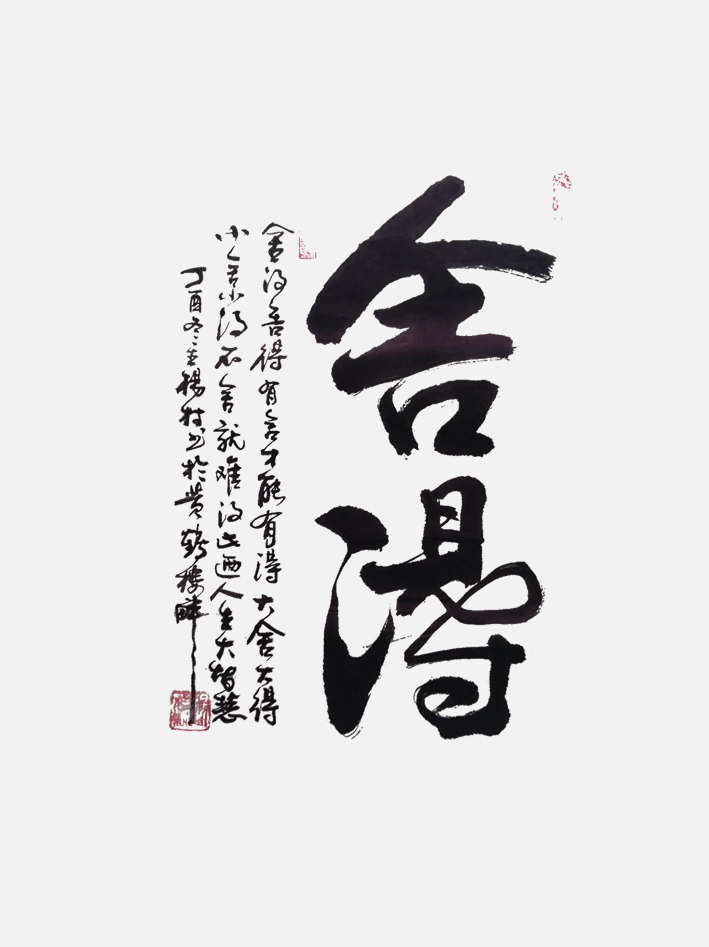 舍得
舍得舍得有舍才能有得大舍大得
小舍小得不舍就难得此乃人生大智慧
丁酉冬至杨村书於黄鹤楼畔